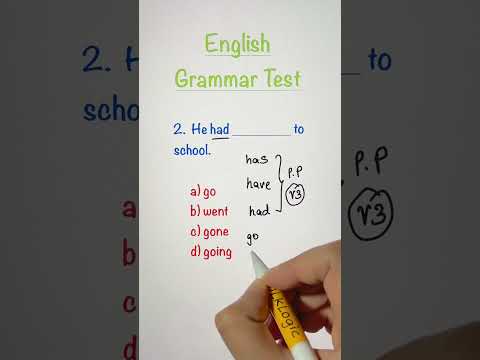 English
Grammar Test
2. H
to
scho
2. He had ________ to
school.
has
have
had
go
P.P
V3
a) go
b) went
c) gone
d) going
a)
b)
c)
d)
P.P
V3